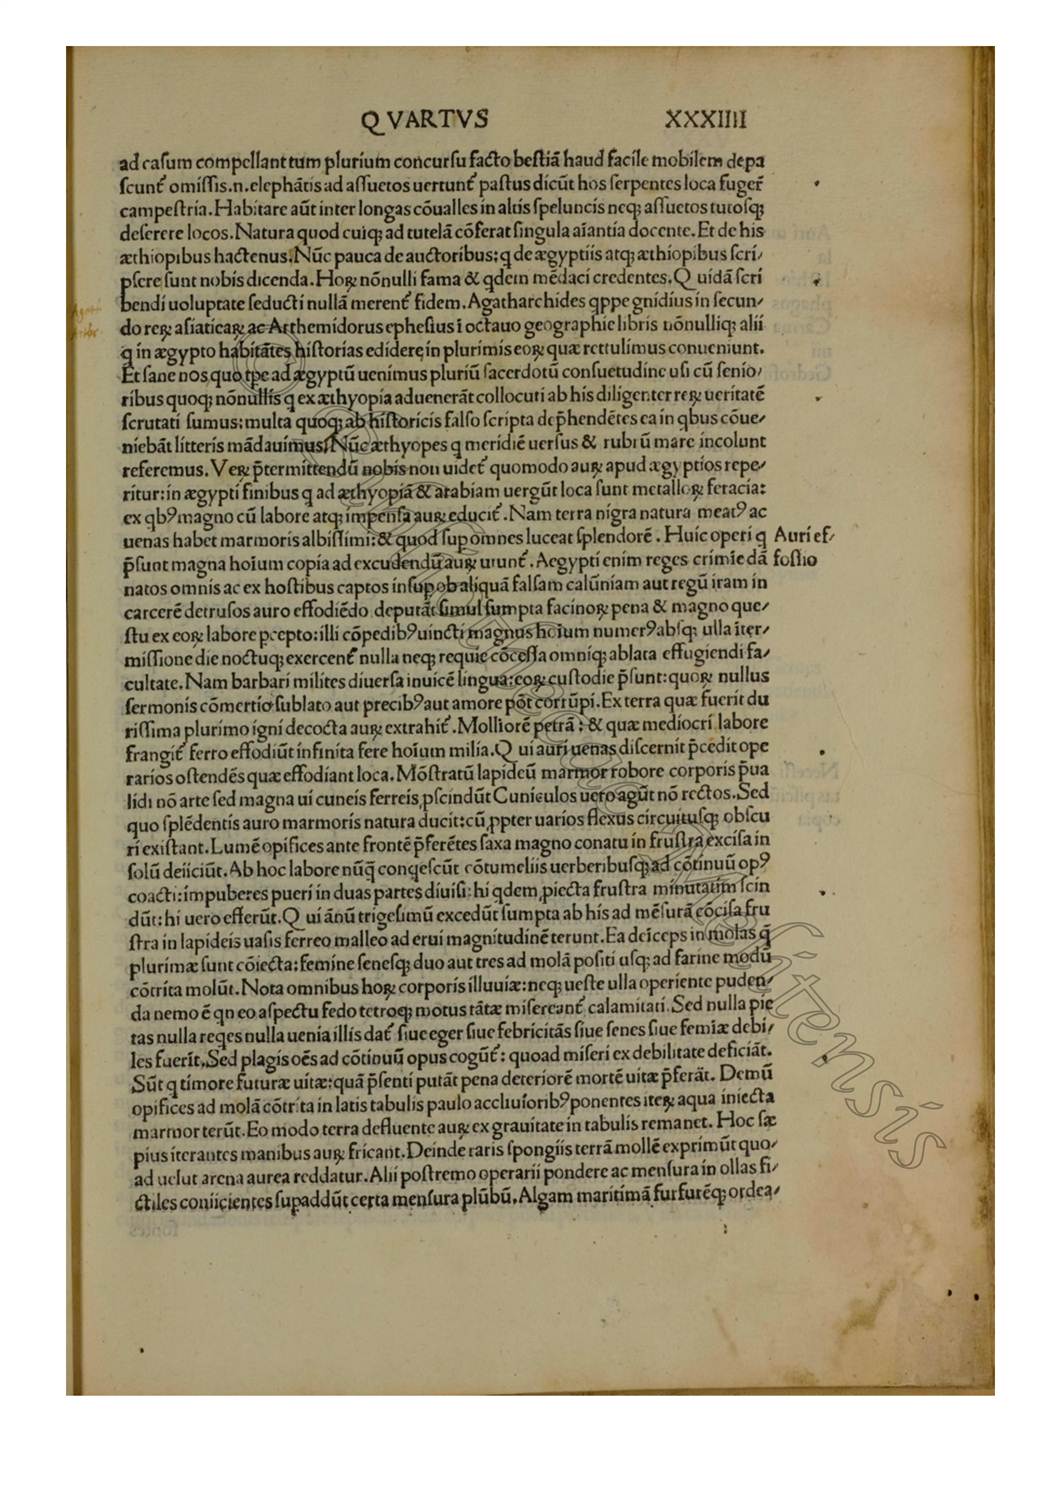 QVARTVS XXXIIII
ad casum compellant tum plurium concursu facto bestiā haud facile mobilem depa
scunt᷑ omissis.n.elephātis ad assuetos uertunt᷑ pastus dicūt hos serpentes loca fuger᷑
campestria.Habitare aūt inter longas cōualles in altis speluncis neqꝫ assuetos tutosqꝫ
deserere locos.Natura quod cuiqꝫ ad tutelā cōferat singula aīantia docente.Et de his
æthiopibus hactenus.Nūc pauca de auctoribus:q de ægyptiis atqꝫ æthiopibus scri/
psere sunt nobis dicenda.Hoꝝ nōnulli fama & qdem mēdaci credentes.Quidā scri
bendi uoluptate seducti nullā merent᷑ fidem.Agatharchides qppe gnidius in secun/
do reꝝ asiaticaꝝ ac Arthemidorus ephesius ī octauo geographie libris nōnulliqꝫ alii
q in ægypto habitātes historias edidere in plurimis eoꝝ quæ rettulimus conueniunt.
Et sane nos quo tpe ad ægyptū uenimus pluriū sacerdotū consuetudine usi cū senio/
ribus quoqꝫ nōnullis q ex æthyopia aduenerāt collocuti ab his diligenter reꝝ ueritatē
scrutati sumus:multa quoqꝫ ab historicis falso scripta dep̄hendētes ea in qbus cōue/
niebāt litteris mādauimus.Nūc æthyopes q meridiē uersus & rubrū mare incolunt
referemus.Veꝝ p̄termittendū nobis non uidet᷑ quomodo auꝝ apud ægyptios repe/
ritur:in ægypti finibus q ad æthyopiā & arabiam uergūt loca sunt metalloꝝ feracia:
ex qbꝰ magno cū labore atqꝫ impensa auꝝ educit᷑.Nam terra nigra natura meatꝰ ac
uenas habet marmoris albissimi:& quod sup omnes luceat splendorē.Huic operi q
Auri ef/
p̄sunt magna hoīum copia ad excudendū auꝝ utunt᷑.Aegypti enim reges crimīe dā
fossio
natos omnis ac ex hostibus captos insup ob aliquā falsam calūniam aut regū iram in
carcerē detrusos auro effodiēdo deputāt simul sumpta facinoꝝ pena & magno que/
stu ex eoꝝ labore pcepto:illi cōpedibꝰ uincti magnus hoīum numerꝰ absqꝫ ulla īter/
missione die noctuqꝫ exercent᷑ nulla neqꝫ requie cōcessa omniqꝫ ablata effugiendi fa/
cultate.Nam barbari milites diuersa inuicē lingua:eoꝝ custodie p̄sunt:quoꝝ nullus
sermonis cōmertio sublato aut precibꝰ aut amore pōt corrūpi.Ex terra quæ fuerit du
rissima plurimo igni decocta auꝝ extrahit᷑.Molliorē petrā:& quæ mediocri labore
frangit᷑ ferro effodiūt infinita fere hoīum milia.Qui auri uenas discernit p̄cedit ope
rarios ostendēs quæ effodiant loca.Mōstratū lapideū marmor robore corporis p̄ua
lidi nō arte sed magna ui cuneis ferreis,pscindūt Cuniculos uero agūt nō rectos.Sed
quo splēdentis auro marmoris natura ducit:cū,ppter uarios flexus circuitusqꝫ obscu
ri existant.Lumē opifices ante frontē p̄ferētes saxa magno conatu in frustra excisa in
solū deiiciūt.Ab hoc labore nūq̄ conqescūt cōtumeliis uerberibusqꝫ ad cōtinuū opꝰ
coacti:impuberes pueri in duas partes diuisi:hi qdem,piecta frustra minutatim scin
dūt:hi uero efferūt.Qui ānū trigesimū excedūt sumpta ab his ad mēsurā cōcisa fru
stra in lapideis uasis ferreo malleo ad erui magnitudinē terunt.Ea deīceps in molas q̄
plurimæ sunt cōiecta:femine senesqꝫ duo aut tres ad molā positi usqꝫ ad farine modū
cōtrita molūt.Nota omnibus hoꝝ corporis illuuiæ:neqꝫ ueste ulla operiente puden/
da nemo ē qn eo aspectu fedo tetroqꝫ motus tātæ misereant᷑ calamitati.Sed nulla pie
tas nulla reqes nulla uenia illis dat᷑ siue eger siue febricitās siue senes siue femiæ debi/
les fuerīt.Sed plagis oēs ad cōtinuū opus cogūt᷑:quoad miseri ex debilitate deficiāt.
Sūt q timore futuræ uitæ:quā p̄senti putāt pena deteriorē mortē uitæ p̄ferāt.Demū
opifices ad molā cōtrita in latis tabulis paulo accliuioribꝰ ponentes iteꝝ aqua iniecta
marmor terūt.Eo modo terra defluente auꝝ ex grauitate in tabulis remanet.Hoc sæ
pius iterantes manibus auꝝ fricant.Deinde raris spongiis terrā mollē exprimūt quo/
ad uelut arena aurea reddatur.Alii postremo operarii pondere ac mensura in ollas fi/
ctiles coniicientes supaddūt certa mensura plūbū.Algam maritimā furfurēqꝫ ordea/